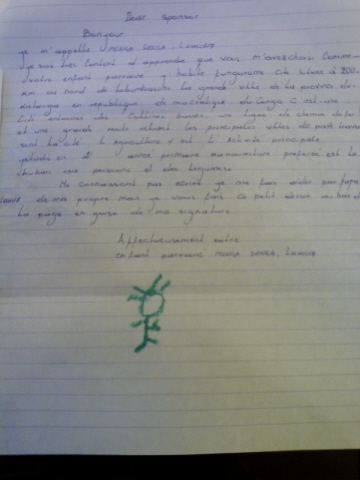 Dear sponsor
Bonjour
je m'appelle Lumiere
je suis très content d'apprendre que vous m'avez choisi comme
votre enfant parrainé j'habite fungurume cité située à 200
km au nord de Lubumbashi la grande ville de la province du
Katanga en republique democratique du Congo C'est une
cité entourée des collines une ligne de chemin de fer
et une grande route reliant les principales villes de
la cité L agriculture est L activité principale
j'étudie en 2e année primaire ma nourriture préférée est le
aux poissons et des legumes.
Ne connaissant pas écrire je me fais aider par papa
de ma propre main je vous fais ce petit dessin au bas de
la page en guise de ma signature.
Affectueusement votre
enfant parrainé Lumiere